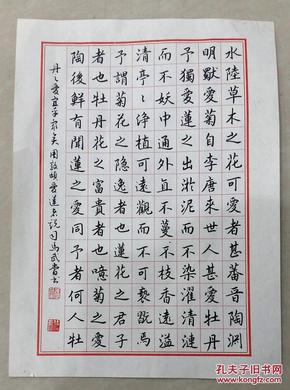 水陸草木之花可愛者甚蕃晉陶淵
明獨愛菊自李唐來世人甚愛牡丹
予獨愛蓮之出淤泥而不染濯清漣
而不妖中通外直不蔓不枝香遠溢
清亭〻淨植可遠觀而不可褻翫焉
予謂菊花之隱逸者也蓮花之君子
者也牡丹花之富貴者也噫菊之愛
陶後鮮有聞蓮之愛同予者何人牡
丹之愛宜乎眾矣周敦頤愛蓮說司馬武書
孔夫子旧书网